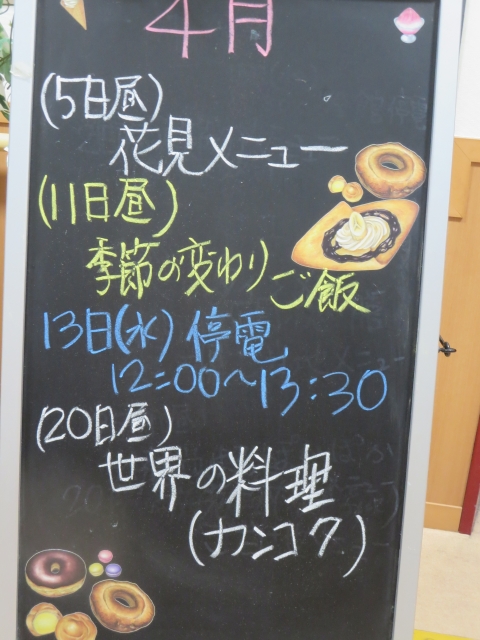 4月
(5日昼)
花見メニュー
(11日昼)
季節の変わりご飯
13日(水)停電
12:00~13:30
(20日昼)
世界の料理
(カンコク)